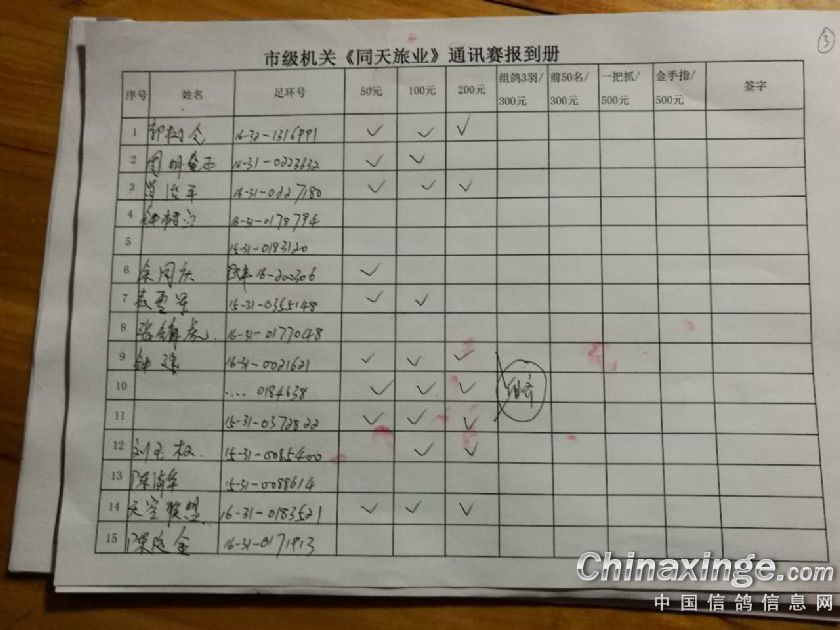 ③
市级机关《同天旅业》通讯赛报到册
序号 姓名 足环号 50元 100元 200元 组鸽3羽/300元 前50名/300元 一把抓/500元 金手指/500元 签字
1 16-32-1316991 ✓ ✓ ✓
2 16-31-0223632 ✓ ✓
3 16-31-0227180 ✓ ✓ ✓
4 16-31-0179794
5 15-31-0183120
6 余国庆 16-200306 ✓
7 15-31-0365148 ✓ ✓
8 16-31-0177048
9 钟建 16-31-0021621 ✓ ✓ ✓
10 .... 0184638 ✓ ✓ ✓
11 15-31-0372822 ✓ ✓ ✓
12 刘玉权 15-31-0085400 ✓ ✓
13 15-31-0088614
14 天空联盟 16-31-0183521 ✓ ✓ ✓
15 陈廷金 16-31-0171913
Chinaxinge.com
中国信鸽信息网